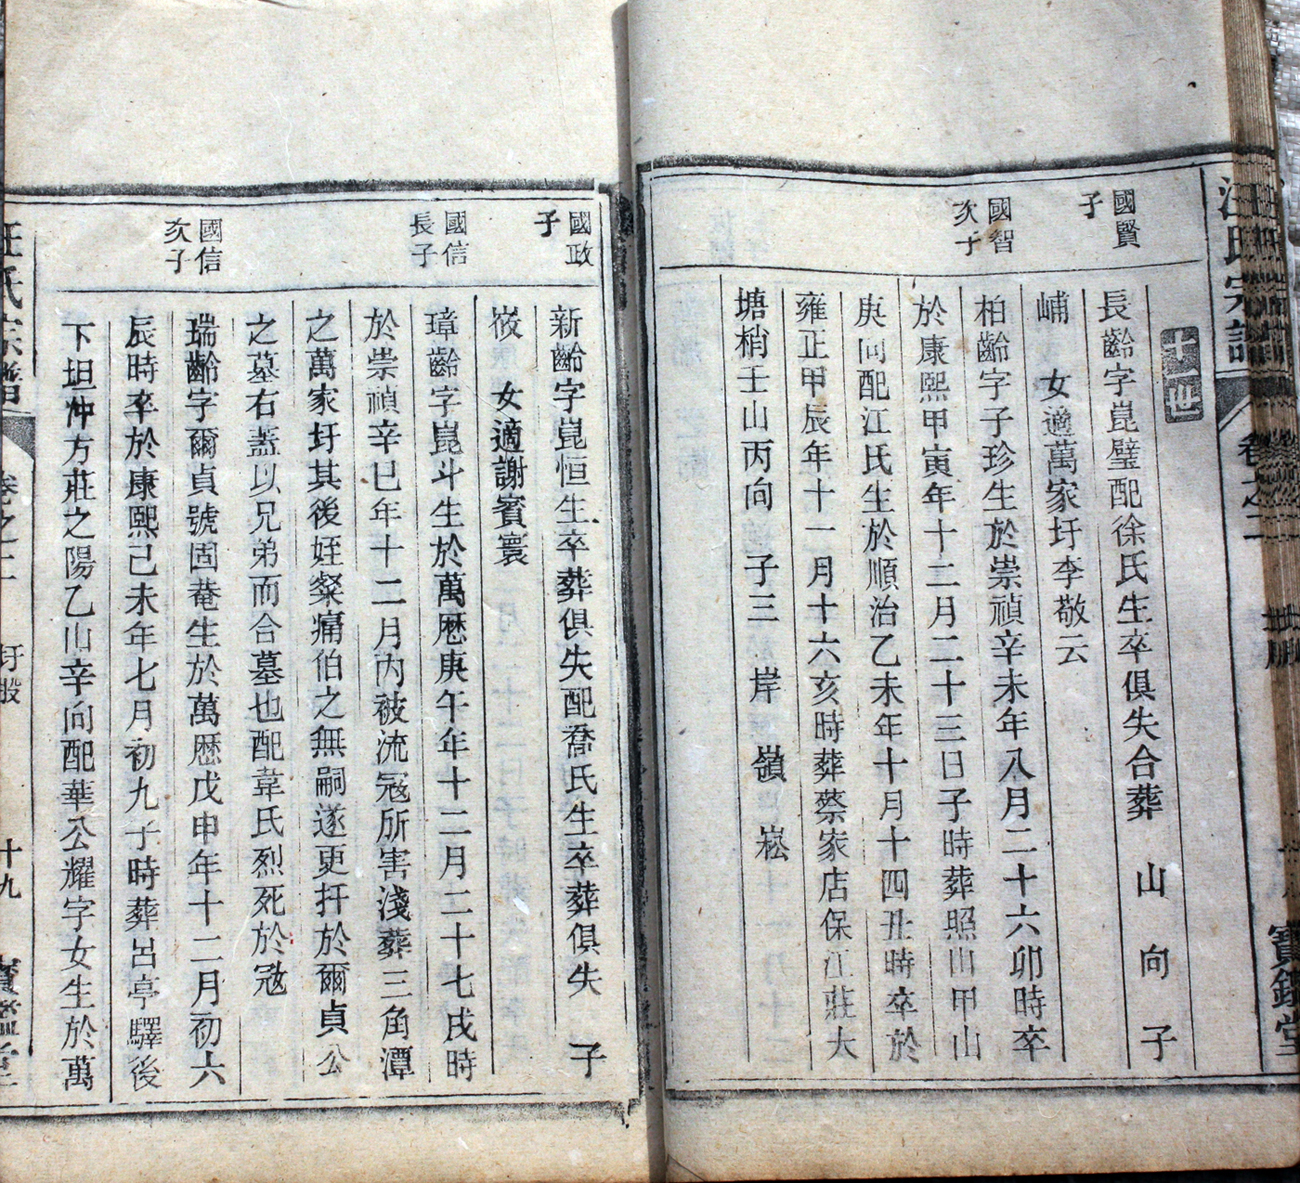 汪氏宗譜
卷之二
寶鑑堂
世
國賢
子
長齡字崑璧配徐氏生卒俱失合葬 山 向 子
峬 女適萬家圩李敬云
國智
次子
柏齡字子珍生於崇禎辛未年八月二十六卯時卒
於康熙甲寅年十二月二十三日子時葬照山甲山
庚向配江氏生於順治乙未年十月十四丑時卒於
雍正甲辰年十一月十六亥時葬蔡家店保江莊大
塘梢壬山丙向 子三 岸 嶺 崧
國政
子
新齡字崑恒生卒葬俱失配喬氏生卒葬俱失 子
峧 女適謝賓寰
國信
長子
璋齡字崑斗生於萬曆庚午年十二月二十七戌時
於崇禎辛巳年十二月內被流寇所害淺葬三角潭
之萬家圩其後姪粲痛伯之無嗣遂更扦於爾貞公
之墓右蓋以兄弟而合墓也配韋氏烈死於寇
國信
次子
瑞齡字爾貞號固菴生於萬曆戊申年十二月初六
辰時卒於康熙己未年七月初九子時葬呂亭驛後
下坦冲方莊之陽乙山辛向配華公耀字女生於萬
汪氏宗譜
卷之二
圩股
十九
寶鑑堂